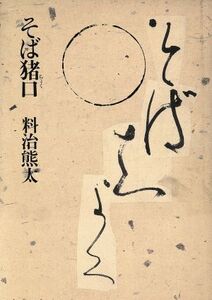 そばちよく
そば猪口
料治熊太